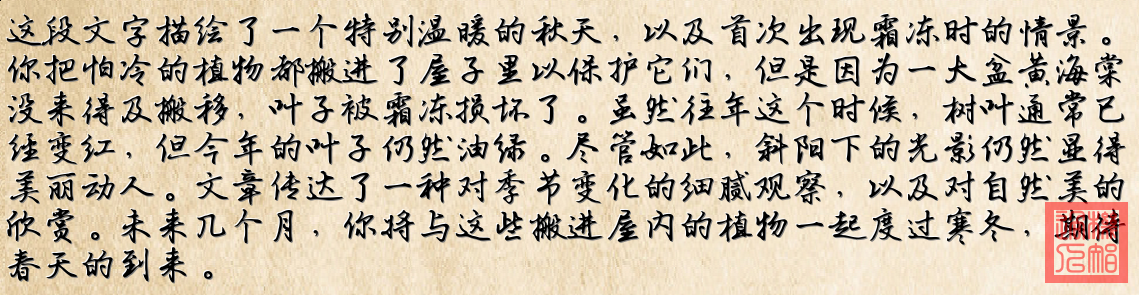 这段文字描绘了一个特别温暖的秋天，以及首次出现霜冻时的情景。
你把怕冷的植物都搬进了屋子里以保护它们，但是因为一大盆黄海棠
没来得及搬移，叶子被霜冻损坏了。虽然往年这个时候，树叶通常已
经变红，但今年的叶子仍然油绿。尽管如此，斜阳下的光影仍然显得
美丽动人。文章传达了一种对季节变化的细腻观察，以及对自然美的
欣赏。未来几个月，你将与这些搬进屋内的植物一起度过寒冬，期待
春天的到来。